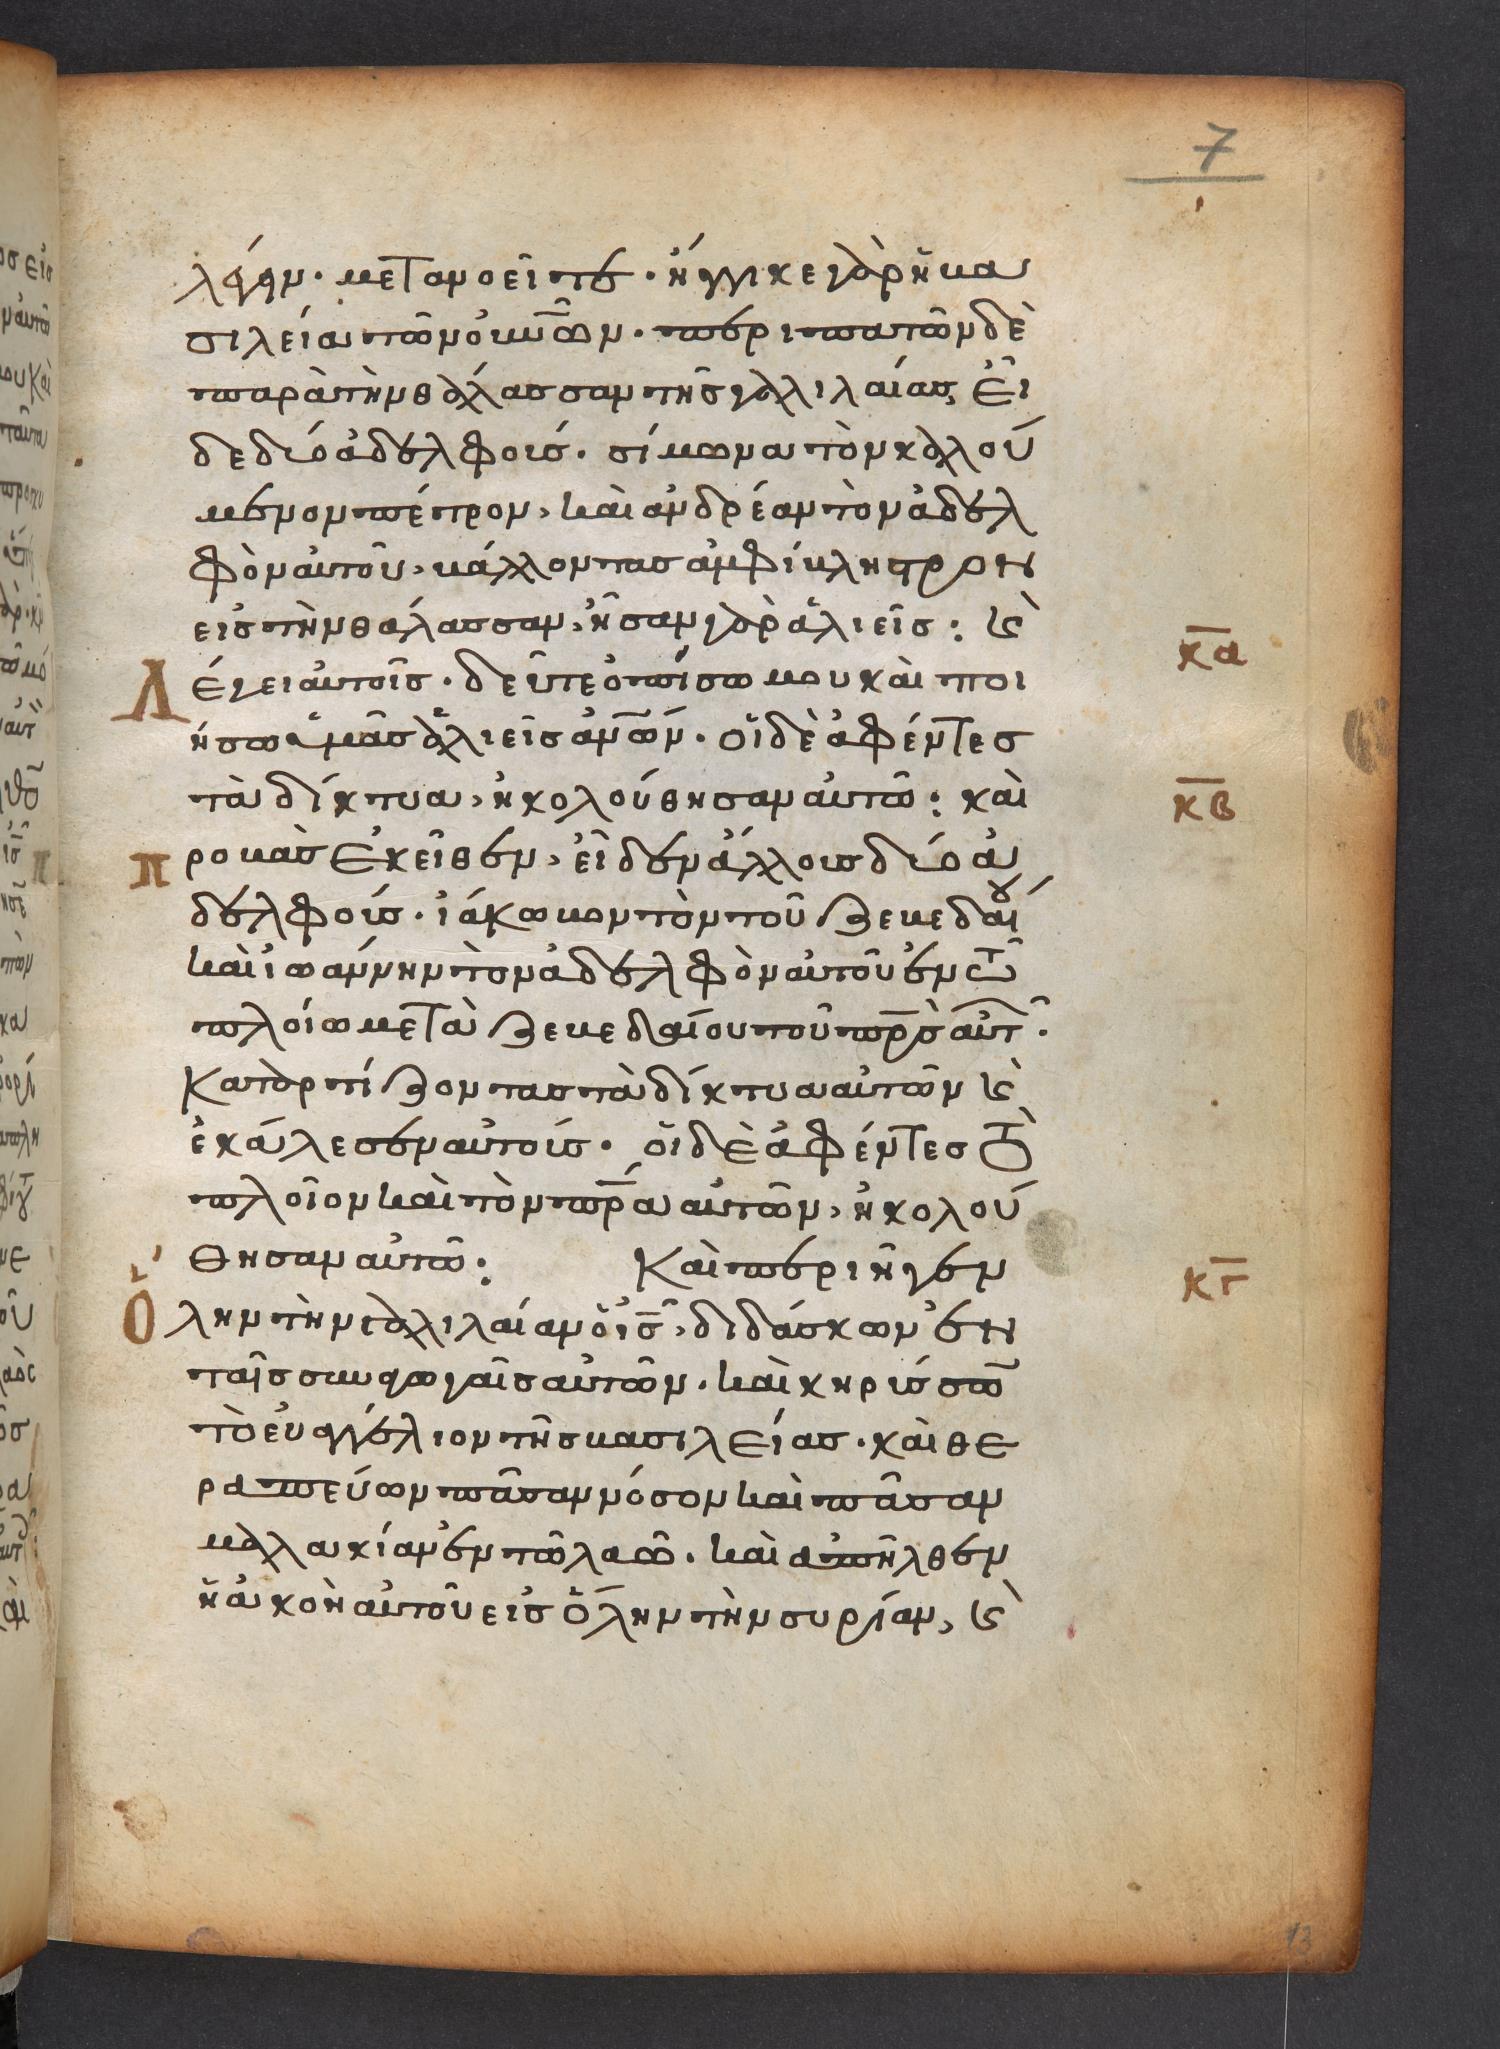 7
λέγειν· μετανοεῖτε· ἤγγικε γὰρ ἡ βα
σιλεία τῶν οὐνῶν· περιπατῶν δὲ
παρὰ τὴν θάλασσαν τῆς γαλιλαίας, εἶ
δε δύο ἀδελφούς· σίμωνα τὸν καλού
μενον πέτρον, καὶ ἀνδρέαν τὸν ἀδελ
φὸν αὐτοῦ, βάλλοντας ἀμφίβληστρον
εἰς τὴν θάλασσαν, ἦσαν γὰρ ἁλιεῖς: κὲ
κα
Λ
έγει αὐτοῖς· δεῦτε ὀπίσω μου καὶ ποι
ήσω ὑμᾶς ἁλιεῖς ἀνῶν· οἱ δὲ ἀφέντες
τὰ δίκτυα, ἠκολούθησαν αὐτῶ: καὶ
κβ
Π
ροβὰς ἐκεῖθεν, εἶδεν ἄλλους δύο ἀ
δελφούς· ἰάκωβον τὸν τοῦ ζεβεδαίου
καὶ ἰωάννην τὸν ἀδελφὸν αὐτοῦ ἐν τῶ
πλοίω μετὰ ζεβεδαίου τοῦ πρς αὐτ·
καταρτίζοντας τὰ δίκτυα αὐτῶν κὲ
ἐκάλεσεν αὐτούς· οἱ δὲ ἀφέντες τὸ
πλοῖον καὶ τὸν πρα αὐτῶν, ἠκολού
θησαν αὐτῶ: Καὶ περιῆγεν
κγ
Ὅ
λην τὴν γαλιλαίαν ὁ ις, διδάσκων ἐν
ταῖς συναγωγαῖς αὐτῶν· καὶ κηρύσσω
τὸ εὐαγγέλιον τῆς βασιλείας· καὶ θε
ραπεύων πᾶσαν νόσον καὶ πᾶσαν
μαλακίαν ἐν τῶ λαῶ· καὶ ἀπῆλθεν
ἡ ἀκοὴ αὐτοῦ εἰς ὅλην τὴν συρίαν, κὲ
13